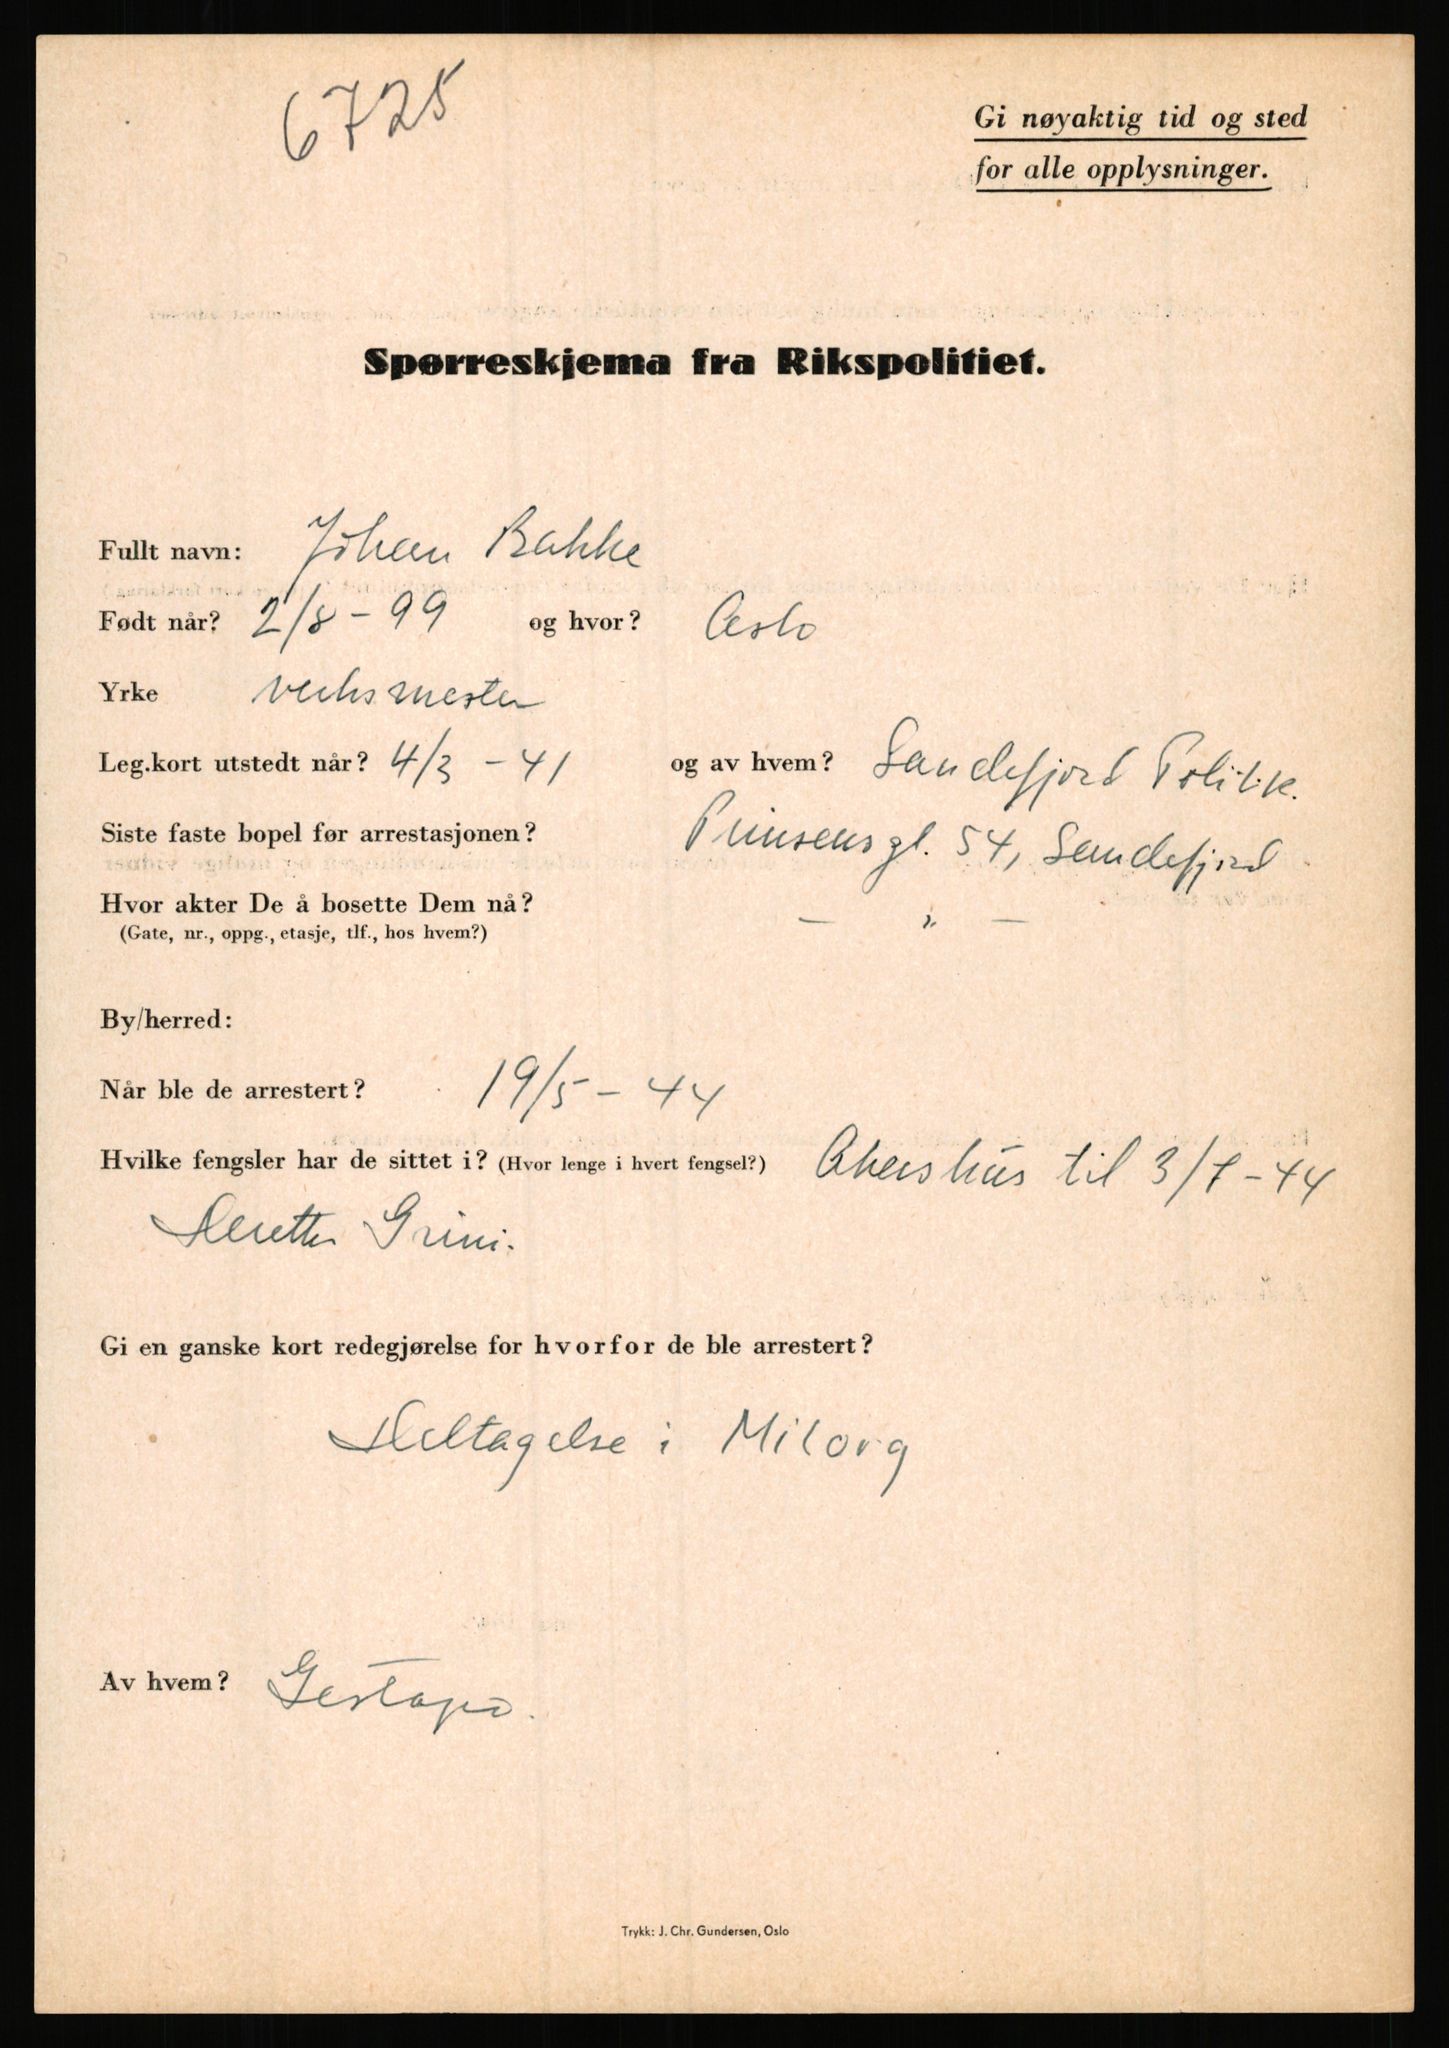 6725
Gi nøyaktig tid og sted
for alle opplysninger.
Spørreskjema fra Rikspolitiet.
Fullt navn: Johan Bakke
Født når? 2/8 - 99 og hvor? Oslo
Yrke verksmester
Leg.kort utstedt når? 4/3 - 41 og av hvem? Sandefjord Politik.
Siste faste bopel før arrestasjonen? Prinsensgt. 54, Sandefjord
Hvor akter De å bosette Dem nå? — " —
(Gate, nr., oppg., etasje, tlf., hos hvem?)
By/herred:
Når ble de arrestert? 19/5 - 44
Hvilke fengsler har de sittet i? (Hvor lenge i hvert fengsel?) Akershus til 3/7 - 44
Deretter Grini.
Gi en ganske kort redegjørelse for hvorfor de ble arrestert?
Deltagelse i Milorg
Av hvem? Gestapo.
Trykk: J. Chr. Gundersen, Oslo